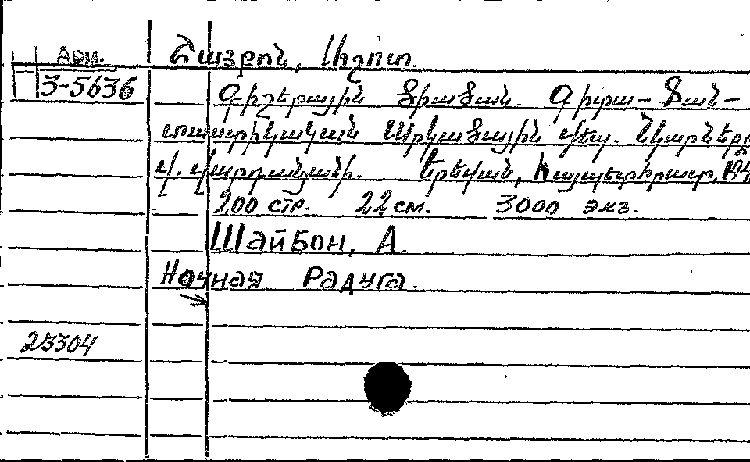 Арм.
3-5636
Շայբոն, Աշոտ.
Գիշերային ծիածան. Գիտա-ֆան-
տաստիկական արկածային վեպ. Նկարները
Վ. Վարդանյանի. Երևան, Հայպետհրատ,
200 стр. 22 см. 3000 экз.
Шайбон, А.
Ночная Радуга.
23304